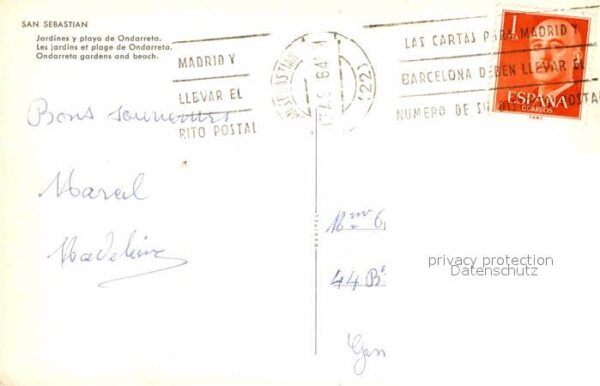 SAN SEBASTIAN
Jardines y playa de Ondarreta.
Les jardins et plage de Ondarreta.
Ondarreta gardens and beach.
MADRID Y
LLEVAR EL
RITO POSTAL
SEBASTIAN
64
(22)
LAS CARTAS PARA MADRID Y
BARCELONA DEBEN LLEVAR EL
NUMERO DE SU POSTAL
1
PTA
ESPAÑA
CORREOS
Bons souvenirs
Marcel
Madeleine
MANIPEL
Mme
44 Bd
Gen
privacy protection
Datenschutz